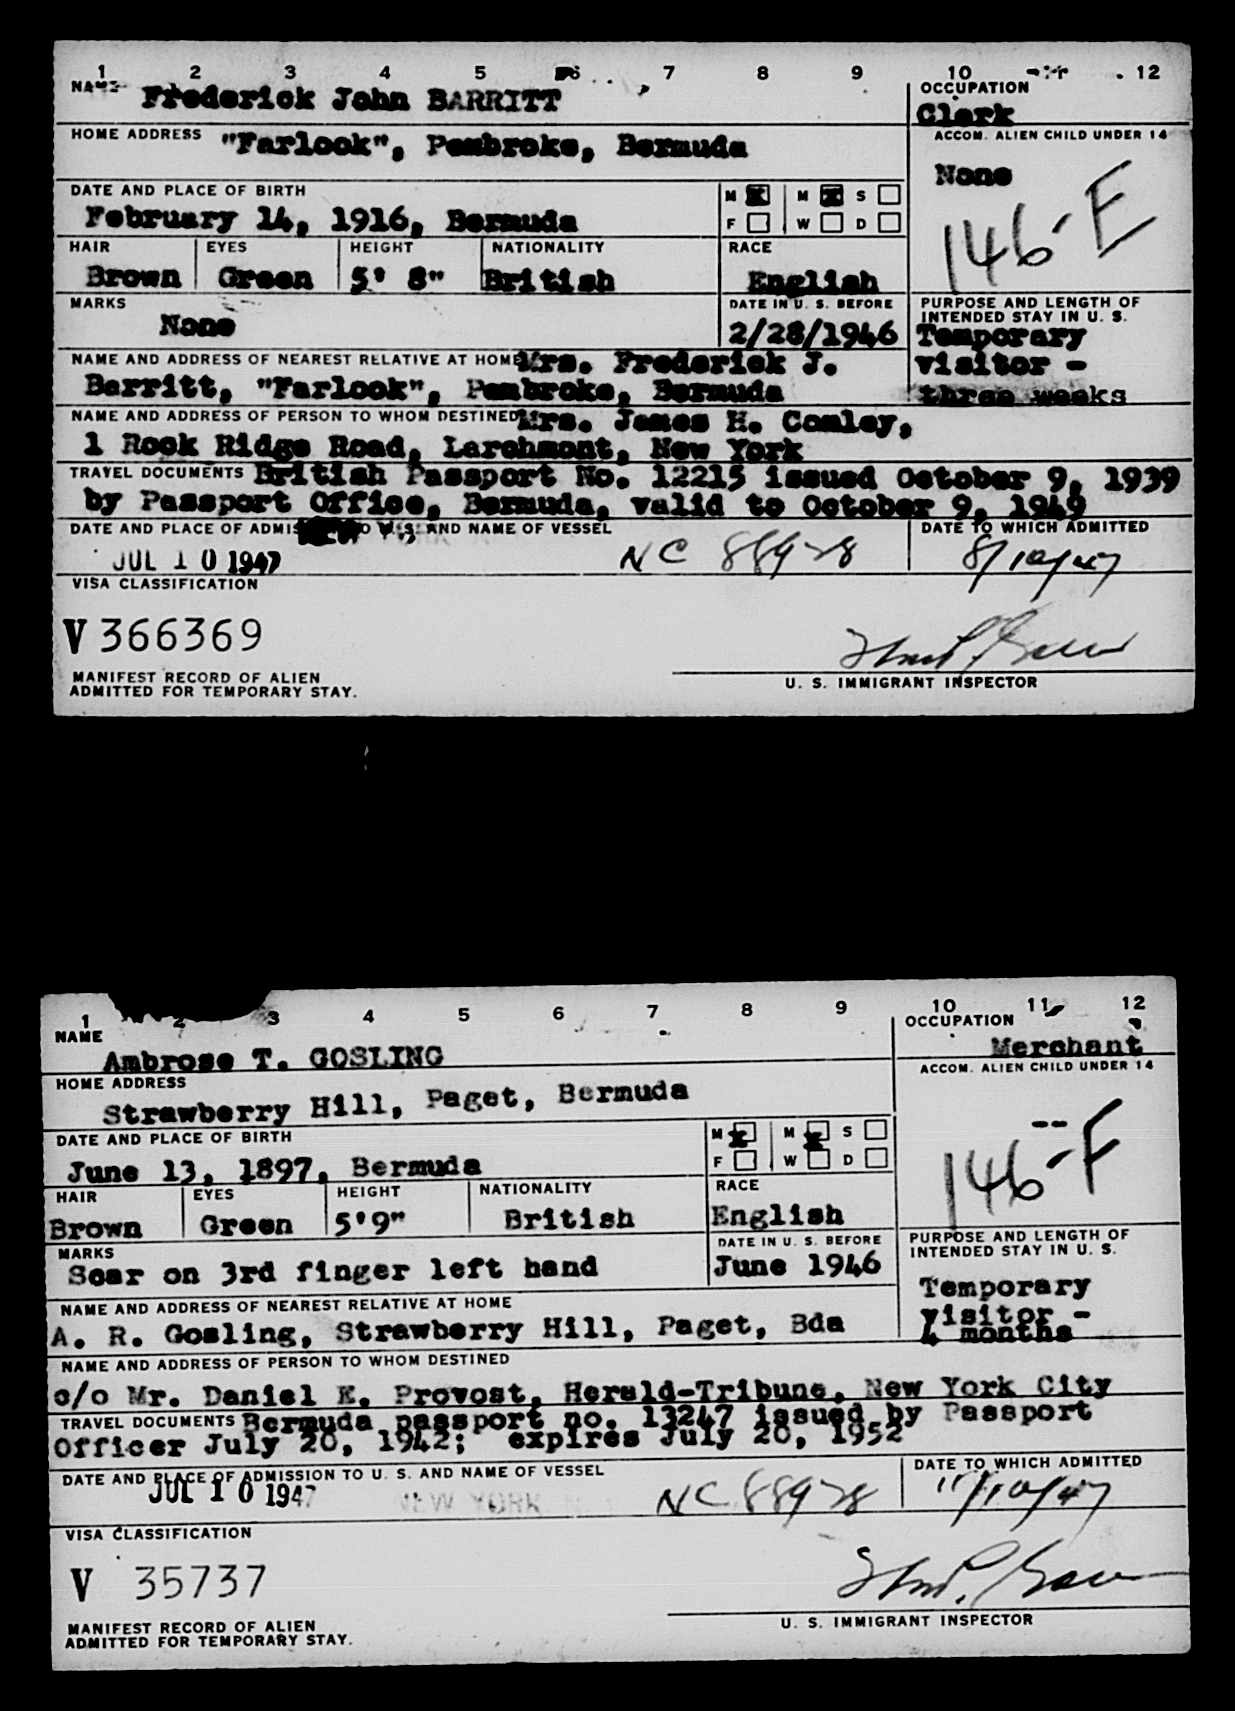 1 2 3 4 5 6 7 8 9 10 12
NAME Frederick John BARRITT
OCCUPATION
Clerk
HOME ADDRESS "Farlook", Pembroke, Bermuda
ACCOM. ALIEN CHILD UNDER 14
None
146-E
DATE AND PLACE OF BIRTH
February 14, 1916, Bermuda
M X M X S
F W D
HAIR EYES HEIGHT NATIONALITY RACE
Brown Green 5' 8" British English
MARKS
None
DATE IN U. S. BEFORE
2/28/1946
PURPOSE AND LENGTH OF
INTENDED STAY IN U. S.
Temporary
visitor -
three weeks
NAME AND ADDRESS OF NEAREST RELATIVE AT HOME Mrs. Frederick J.
Barritt, "Farlook", Pembroke, Bermuda
NAME AND ADDRESS OF PERSON TO WHOM DESTINED Mrs. James H. Comley,
1 Rock Ridge Road, Larchmont, New York
TRAVEL DOCUMENTS British Passport No. 12215 issued October 9, 1939
by Passport Office, Bermuda, valid to October 9, 1949
DATE AND PLACE OF ADMISSION TO U. S. AND NAME OF VESSEL
JUL 10 1947 NEW YORK NC 88928
DATE TO WHICH ADMITTED
8/10/47
VISA CLASSIFICATION
V 366369
MANIFEST RECORD OF ALIEN
ADMITTED FOR TEMPORARY STAY.
U. S. IMMIGRANT INSPECTOR
1 2 3 4 5 6 7 8 9 10 11 12
NAME
Ambrose T. GOSLING
OCCUPATION
Merchant
HOME ADDRESS
Strawberry Hill, Paget, Bermuda
ACCOM. ALIEN CHILD UNDER 14
--
146-F
DATE AND PLACE OF BIRTH
June 13, 1897, Bermuda
M X M X S
F W D
HAIR EYES HEIGHT NATIONALITY RACE
Brown Green 5'9" British English
MARKS
Scar on 3rd finger left hand
DATE IN U. S. BEFORE
June 1946
PURPOSE AND LENGTH OF
INTENDED STAY IN U. S.
Temporary
visitor -
4 months
NAME AND ADDRESS OF NEAREST RELATIVE AT HOME
A. R. Gosling, Strawberry Hill, Paget, Bda
NAME AND ADDRESS OF PERSON TO WHOM DESTINED
c/o Mr. Daniel E. Provost, Herald-Tribune, New York City
TRAVEL DOCUMENTS Bermuda passport no. 13247 issued by Passport
Officer July 20, 1942; expires July 20, 1952
DATE AND PLACE OF ADMISSION TO U. S. AND NAME OF VESSEL
JUL 10 1947 NEW YORK NC 88928
DATE TO WHICH ADMITTED
11/10/47
VISA CLASSIFICATION
V 35737
MANIFEST RECORD OF ALIEN
ADMITTED FOR TEMPORARY STAY.
U. S. IMMIGRANT INSPECTOR